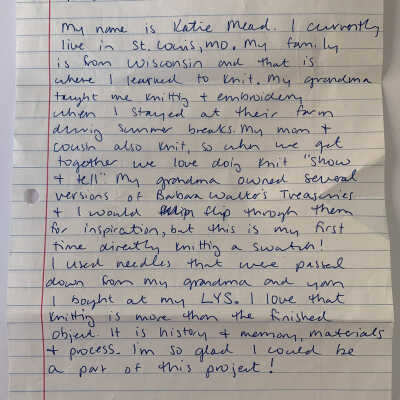 My name is Katie Mead. I currently
live in St. Louis, MO. My family
is from Wisconsin and that is
where I learned to knit. My grandma
taught me knitting + embroidery
when I stayed at their farm
during summer breaks. My mom +
cousin also knit, so when we get
together we love doing knit "show
+ tell". My grandma owned several
versions of Barbara Walker's Treasuries
+ I would flip through them
for inspiration, but this is my first
time directly knitting a swatch!
I used needles that were passed
down from my grandma and yarn
I bought at my LYS. I love that
knitting is more than the finished
object. It is history + memory, materials
+ process. I'm so glad I could be
a part of this project!